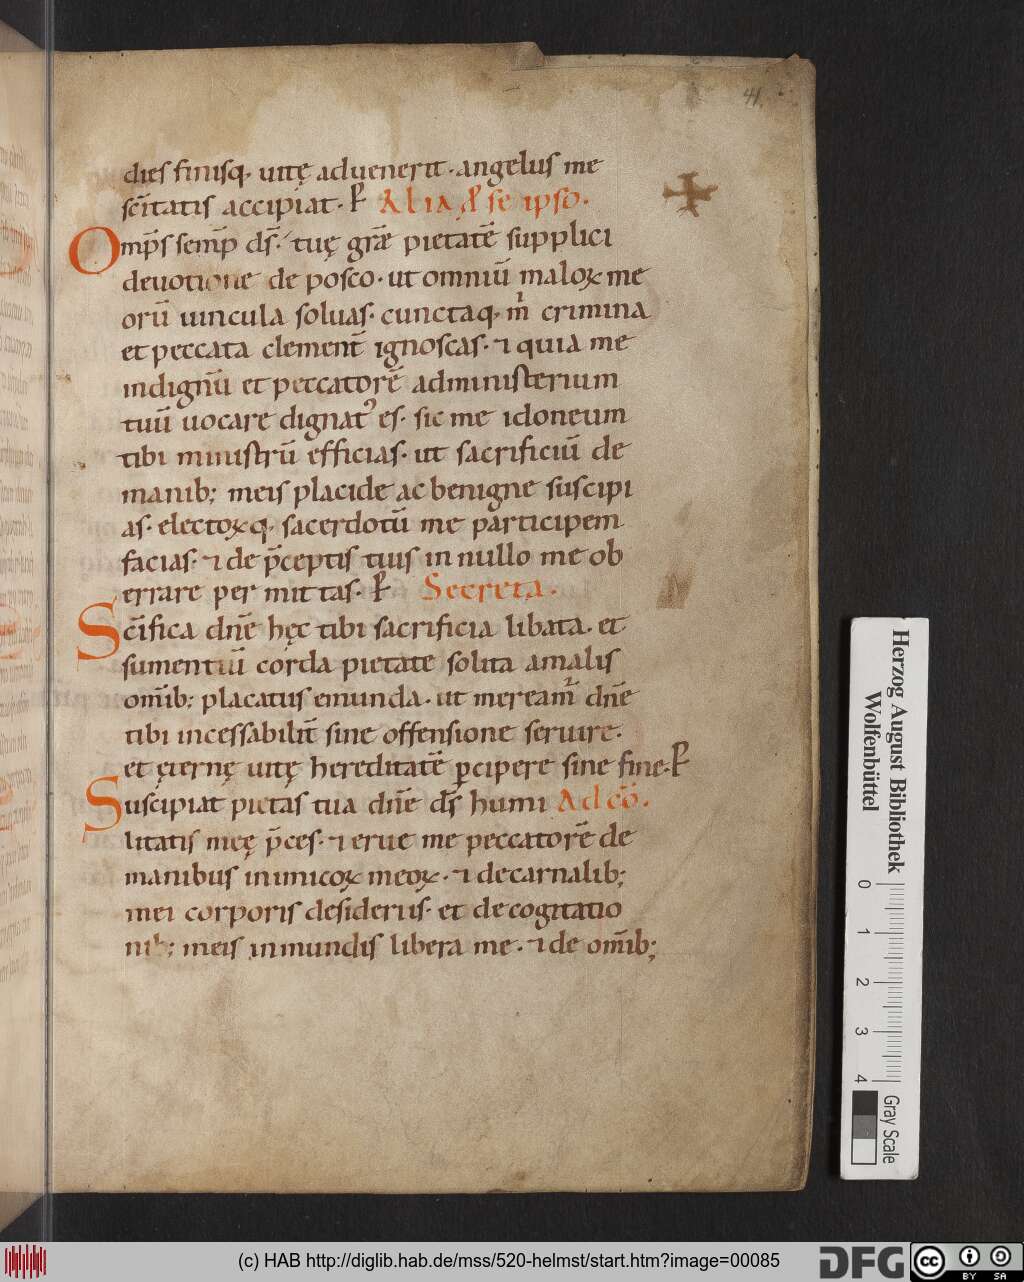 41.
dies finisq· uitę aduenerit· angelus me
sc̄itatis accipiat· P̄ Alia p̄ se ipso·
Omp̄s semp̄ ds̄· tuę grǣ pietatē supplici
deuotione de posco· ut omniū maloꝝ me
orū uincula soluas· cunctaq· m̄ crimina
et peccata clement̄ ignoscas· ⁊ quia me
indignū et peccatorē administerium
tuū uocare dignat᾿ es· sic me idoneum
tibi ministrū efficias· ut sacrificiū de
manib; meis placide ac benigne suscipi
as· electoꝝq· sacerdotū me participem
facias· ⁊ de p̄ceptis tuis in nullo me ob
errare per mittas· P̄ Secreta·
Sc̄ifica dn̄e hęc tibi sacrificia libata· et
sumentiū corda pietate solita amalis
om̄ib; placatus emunda· ut meream̄ dn̄e
tibi incessabilit̄ sine offensione seruire·
et ęternę uitę hereditatē ꝑcipere sine fine· P̄
Suscipiat pietas tua dn̄e ds̄ humi Ad cō·
litatis meę p̄ces· ⁊ erue me peccatorē de
manibus inimicoꝝ meoꝝ· ⁊ decarnalib;
mei corporis desideriis· et de cogitatio
nib; meis inmundis libera me· ⁊ de om̄ib;
Herzog August Bibliothek
Wolfenbüttel
0 1 2 3 4
Gray Scale
(c) HAB http://diglib.hab.de/mss/520-helmst/start.htm?image=00085
DFG
cc BY SA